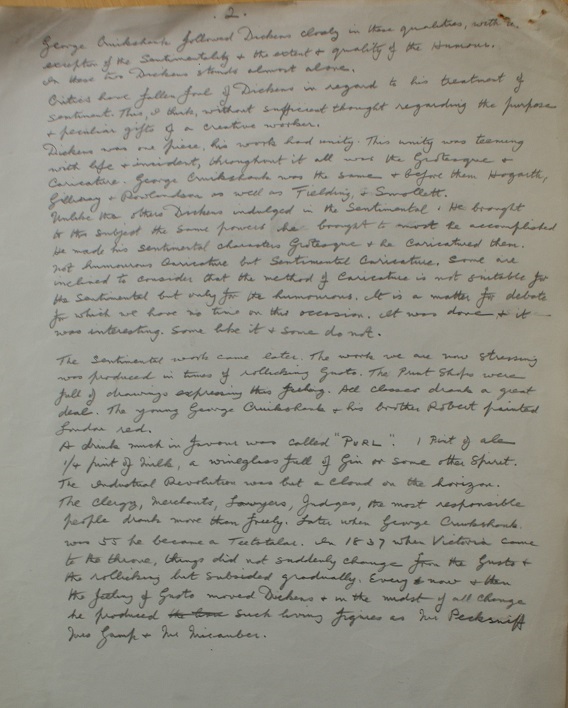 . 2.
George Cruikshank followed Dickens closely in these qualities, with the
exception of the Sentimentality & the extent & quality of the Humour.
In these two Dickens stands almost alone.
Critics have fallen foul of Dickens in regard to his treatment of
sentiment. This, I think, without sufficient thought regarding the purpose
& peculiar gifts of a creative worker.
Dickens was one piece, his work had unity. This unity was teeming
with life & incident, throughout it all was the Grotesque &
Caricature. George Cruikshank was the same & before them Hogarth,
Gillray & Rowlandson as well as Fielding, & Smollett.
Unlike the others Dickens indulged in the Sentimental. He brought
to this subject the same powers he brought to most he accomplished
He made his Sentimental characters Grotesque & he Caricatured them.
not humourous Caricature but Sentimental Caricature. Some are
inclined to consider that the method of Caricature is not suitable for
the Sentimental but only for the humourous. It is a matter for debate
for which we have no time on this occasion. It was done & it
was interesting. Some like it & some do not.
The Sentimental work came later. The work we are now stressing
was produced in times of rollicking Gusto. The Print Shops were
full of drawings expressing this feeling. All classes drank a great
deal. The young George Cruikshank & his brother Robert painted
London red.
A drink much in favour was called "PURL". 1 Pint of ale
1/4 pint of Milk, a wineglass full of Gin or some other Spirit.
The Industrial Revolution was but a Cloud on the horizon.
The Clergy, Merchants, Lawyers, Judges, the most responsible
people drank more than freely. Later when George Cruikshank
was 55 he became a Teetotaler. In 1837 when Victoria came
to the throne, things did not suddenly change from the Gusto &
the rollicking but subsided gradually. Every now & then
the feeling of Gusto moved Dickens & in the midst of all change
he produced such living figures as Mr Pecksniff
Mrs Gamp & Mr Micawber.